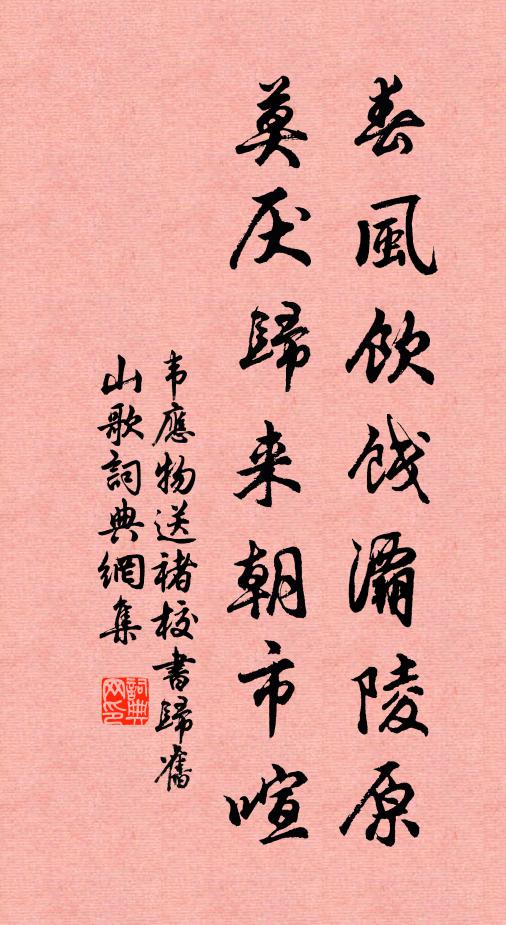 春風飲餞灞陵原
莫厌歸来朝市喧
韦應物送褚校書歸舊
山歌詞典網集
詞典網印